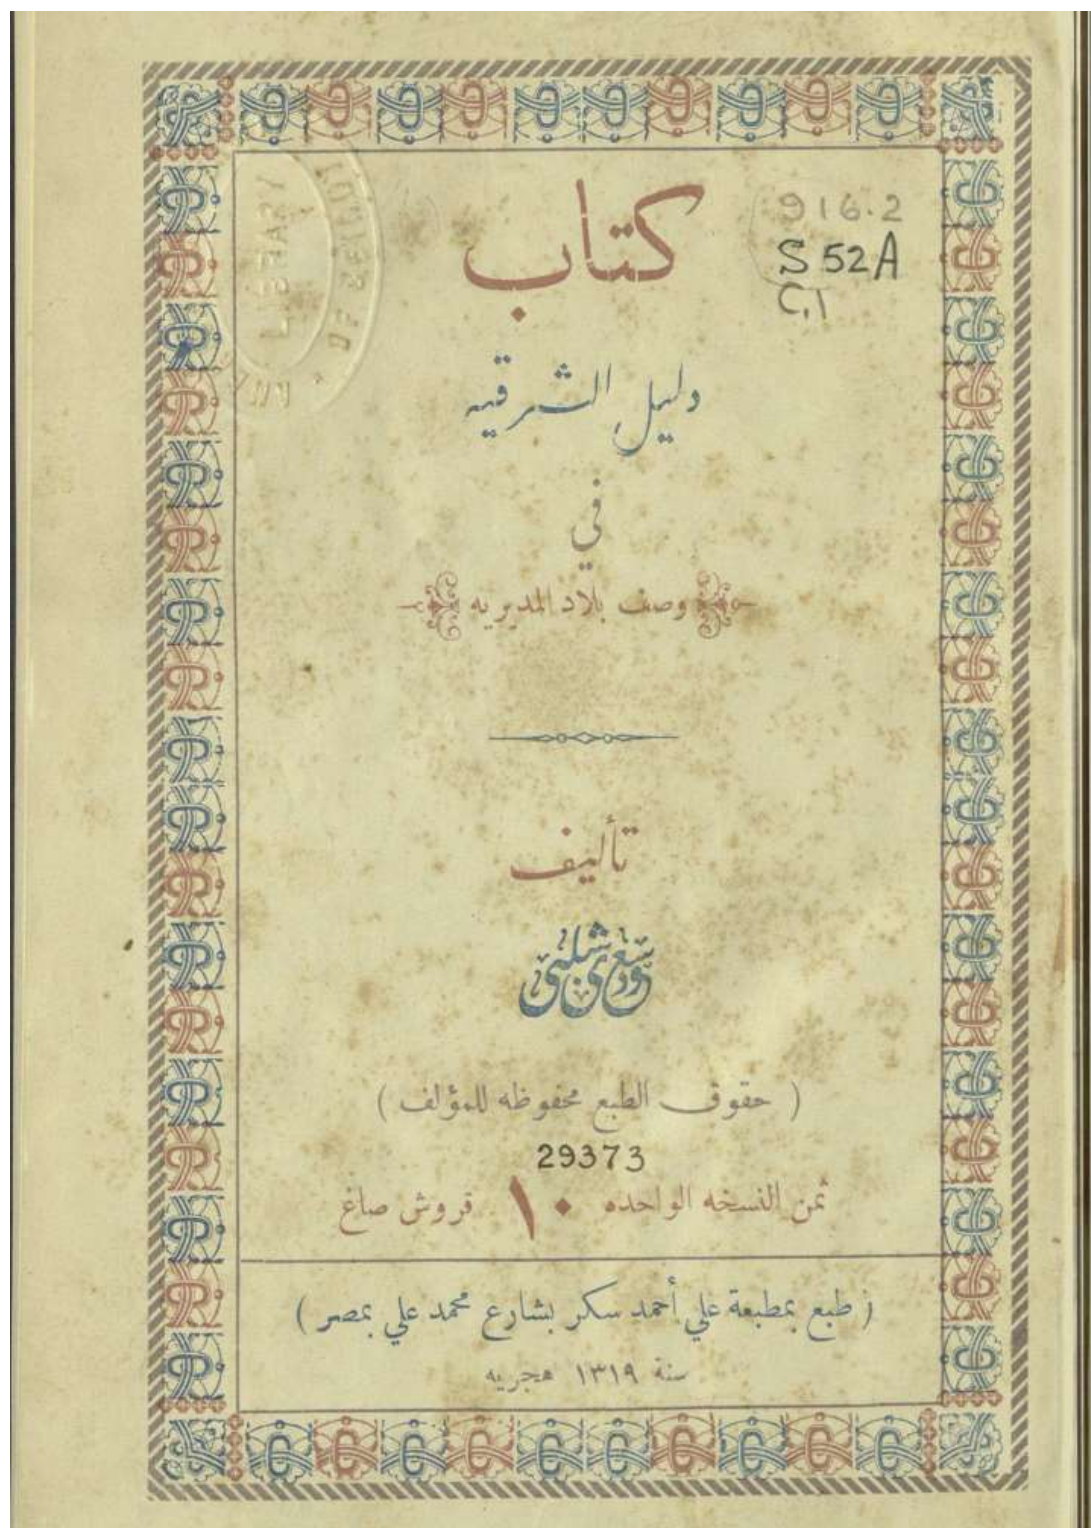 كتاب
916.2
S 52A
C.1
دليل الشرقيه
في
وصف بلاد المديريه
تأليف
شلبى
( حقوق الطبع محفوظه للمؤلف )
29373
ثمن النسخه الواحده ١٠ قروش صاغ
( طبع بمطبعة علي أحمد سكر بشارع محمد علي بمصر )
سنة ١٣١٩ هجريه